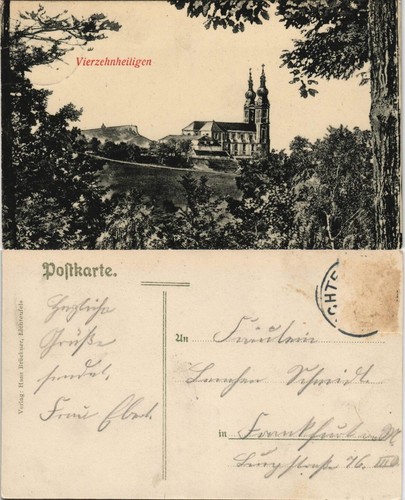 Vierzehnheiligen
Postkarte.
Verlag: Hans Brückner, Lichtenfels
LICHTE
Herzliche
Grüße
sendet
Frau Ebert.
An Fräulein
Lenchen Schmidt.
in Frankfurt a. M
76. III